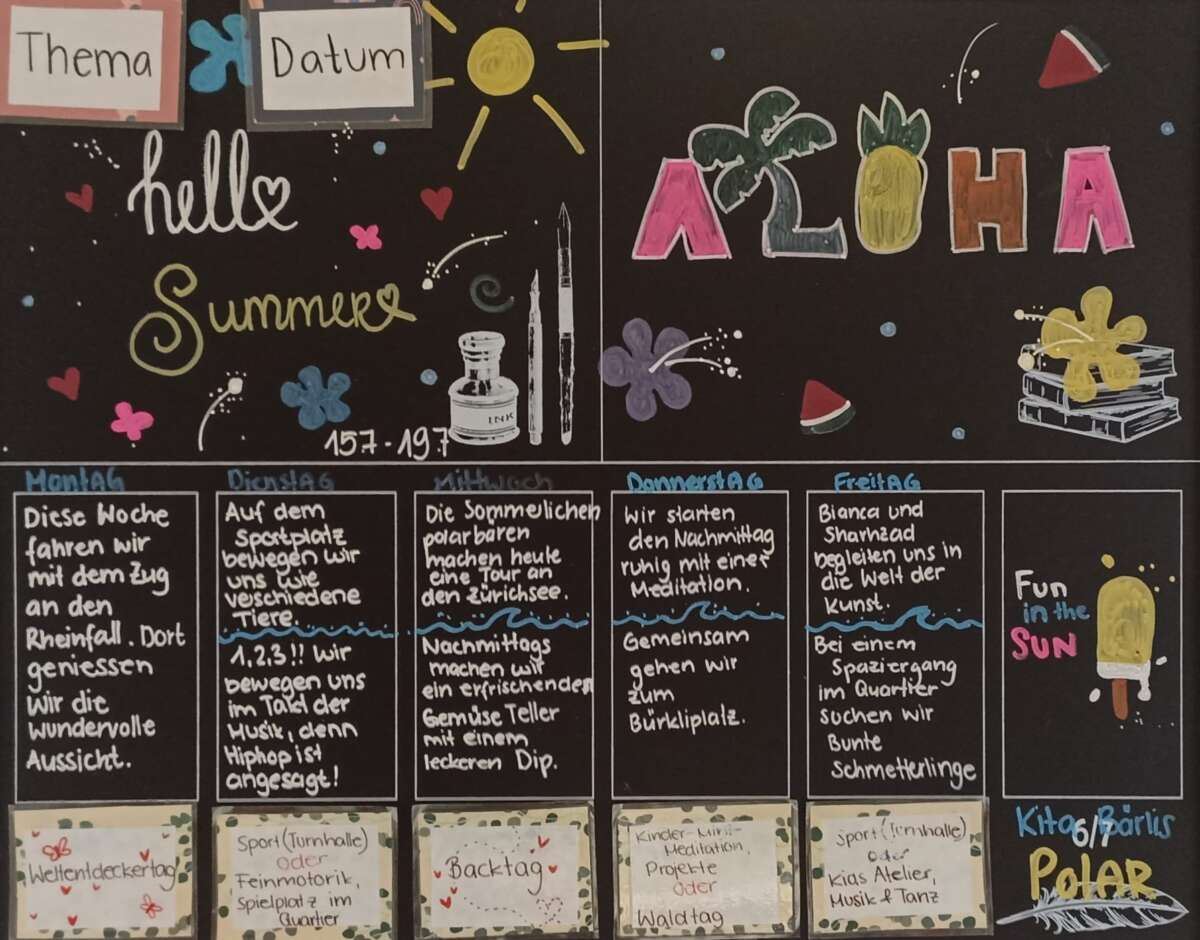 Thema
Datum
hello
Summer
ALOHA
INK
157-197
Montag
Diese Woche
fahren wir
mit dem Zug
an den
Rheinfall. Dort
geniessen
wir die
wundervolle
Aussicht.
Weltentdeckertag
Dienstag
Auf dem
Sportplatz
bewegen wir
uns wie
verschiedene
Tiere.
1,2,3!! Wir
bewegen uns
im Takt der
Musik, denn
Hiphop ist
angesagt!
Sport (Turnhalle)
oder
Feinmotorik,
Spielplatz im
Quartier
Mittwoch
Die Sommerlichen
polarbären
machen heute
eine Tour an
den Zürichsee.
Nachmittags
machen wir
ein erfrischenden
Gemüse Teller
mit einem
leckeren Dip.
Backtag
Donnerstag
Wir starten
den Nachmittag
ruhig mit einer
Meditation.
Gemeinsam
gehen wir
zum
Bürkliplatz.
Kinder-Mini-
Meditation,
Projekte
oder
Waldtag
Freitag
Bianca und
Sharhzad
begleiten uns in
die Welt der
Kunst.
Bei einem
Spaziergang
im Quartier
suchen wir
Bunte
Schmetterlinge
Sport (Turnhalle)
oder
Kias Atelier,
Musik & Tanz
Fun
in the
SUN
Kita Bärlis
6/7
POLAR